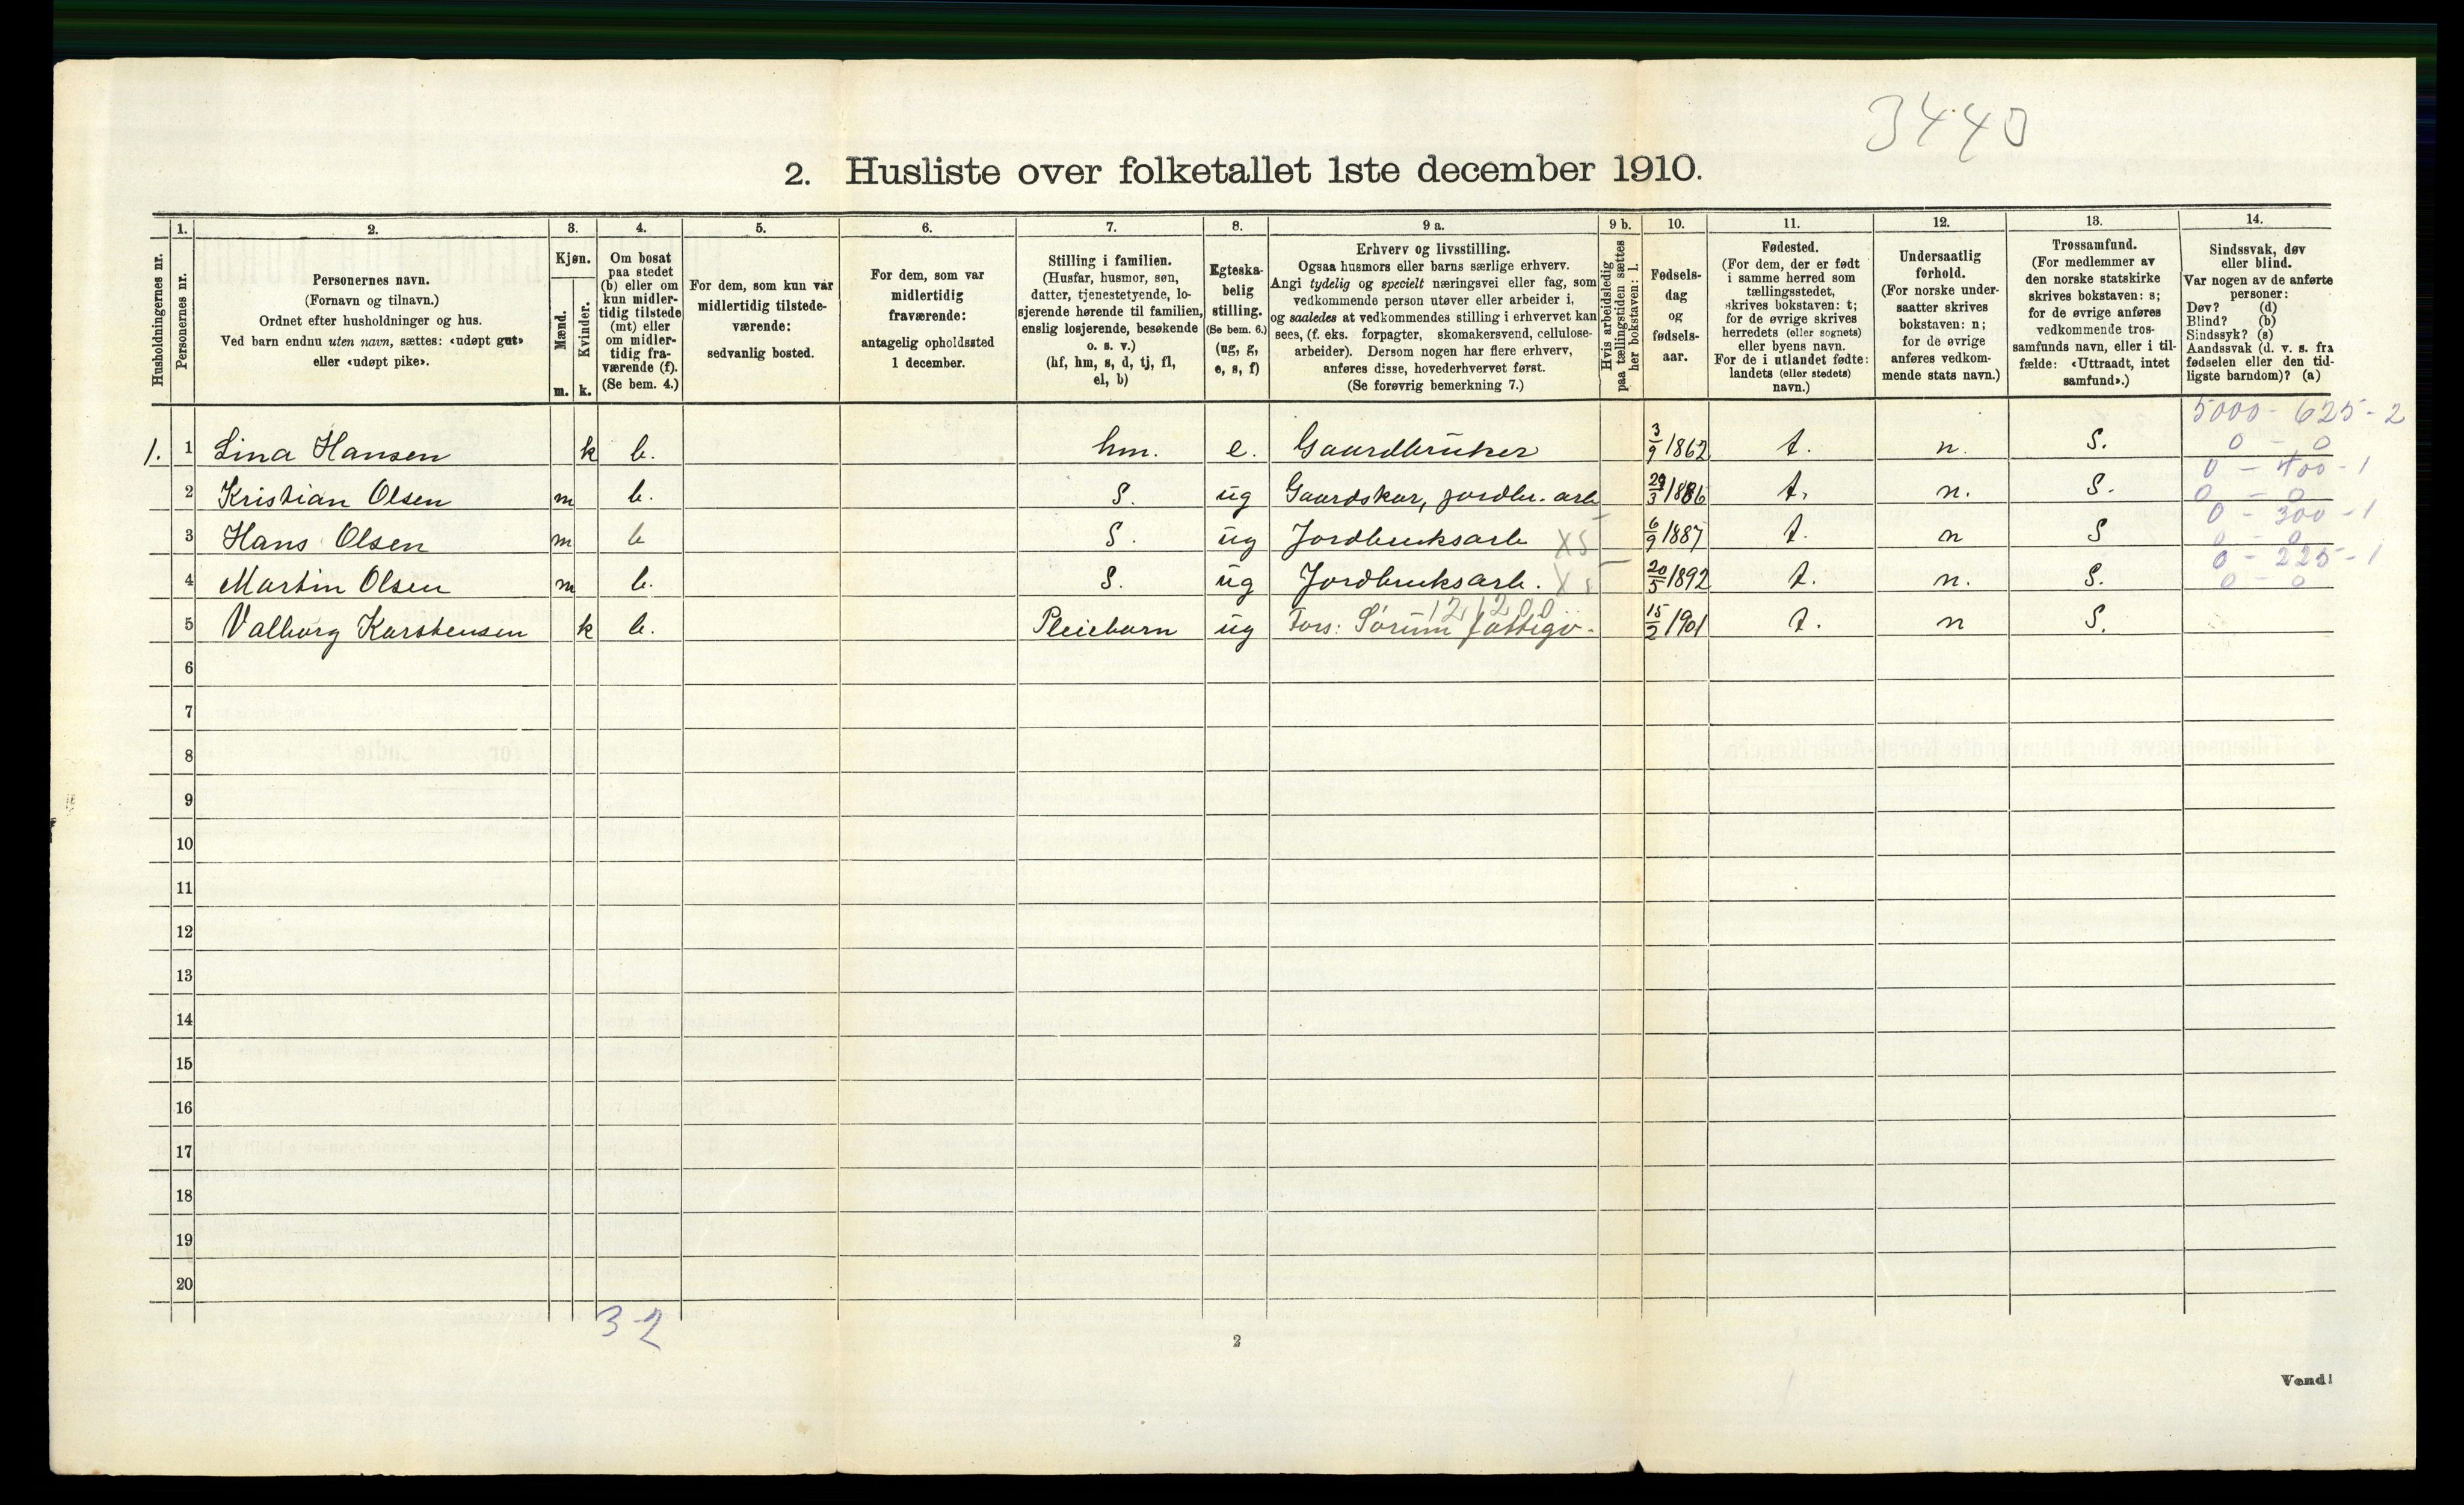 3440
2. Husliste over folketallet 1ste december 1910.
Husholdningernes nr.
1.
Personernes nr.
2.
Personernes navn.
(Fornavn og tilnavn.)
Ordnet efter husholdninger og hus.
Ved barn endnu uten navn, sættes: «udøpt gut»
eller «udøpt pike».
3.
Kjøn.
Mænd.
m.
Kvinder.
k.
4.
Om bosat
paa stedet
(b) eller om
kun midler-
tidig tilstede
(mt) eller
om midler-
tidig fra-
værende (f).
(Se bem. 4.)
5.
For dem, som kun var
midlertidig tilstede-
værende:
sedvanlig bosted.
6.
For dem, som var
midlertidig
fraværende:
antagelig opholdssted
1 december.
7.
Stilling i familien.
(Husfar, husmor, søn,
datter, tjenestetyende, lo-
sjerende hørende til familien,
enslig losjerende, besøkende
o. s. v.)
(hf, hm, s, d, tj, fl,
el, b)
8.
Egteska-
belig
stilling.
(Se bem. 6.)
(ug, g,
e, s, f)
9 a.
Erhverv og livsstilling.
Ogsaa husmors eller barns særlige erhverv.
Angi tydelig og specielt næringsvei eller fag, som
vedkommende person utøver eller arbeider i,
og saaledes at vedkommendes stilling i erhvervet kan
sees, (f. eks. forpagter, skomakersvend, cellulose-
arbeider). Dersom nogen har flere erhverv,
anføres disse, hovederhvervet først.
(Se forøvrig bemerkning 7.)
9 b.
Hvis arbeidsledig
paa tællingstiden sættes
her bokstaven: l.
10.
Fødsels-
dag
og
fødsels-
aar.
11.
Fødested.
(For dem, der er født
i samme herred som
tællingsstedet,
skrives bokstaven: t;
for de øvrige skrives
herredets (eller sognets)
eller byens navn.
For de i utlandet fødte:
landets (eller stedets)
navn.)
12.
Undersaatlig
forhold.
(For norske under-
saatter skrives
bokstaven: n;
for de øvrige
anføres vedkom-
mende stats navn.)
13.
Trossamfund.
(For medlemmer av
den norske statskirke
skrives bokstaven: s;
for de øvrige anføres
vedkommende tros-
samfunds navn, eller i til-
fælde: «Uttraadt, intet
samfund».)
14.
Sindssvak, døv
eller blind.
Var nogen av de anførte
personer:
Døv? (d)
Blind? (b)
Sindssyk? (s)
Aandssvak (d. v. s. fra
fødselen eller den tid-
ligste barndom)? (a)
5000 - 625 - 2
1. 1 Lina Hansen k b. hm. e. Gaardbruker 3/9 1862 t. n. S. 0 - 0
0 - 400 - 1
2 Kristian Olsen m b. S. ug Gaardskar, jordbr. arb 29/3 1886 t. n. S. 0 - 0
0 - 300 - 1
3 Hans Olsen m b S. ug Jordbruksarb XS 6/9 1887 t. n S 0 - 0
0 - 225 - 1
4 Martin Olsen m b. S. ug Jordbruksarb. Xs 20/5 1892 t. n. S. 0 - 0
12 1200
5 Valborg Karstensen k b. Pleiebarn ug Fors: Sørum fattigv. 15/2 1901 t. n S.
6
7
8
9
10
11
12
13
14
15
16
17
18
19
20
3-2
2
Vend!